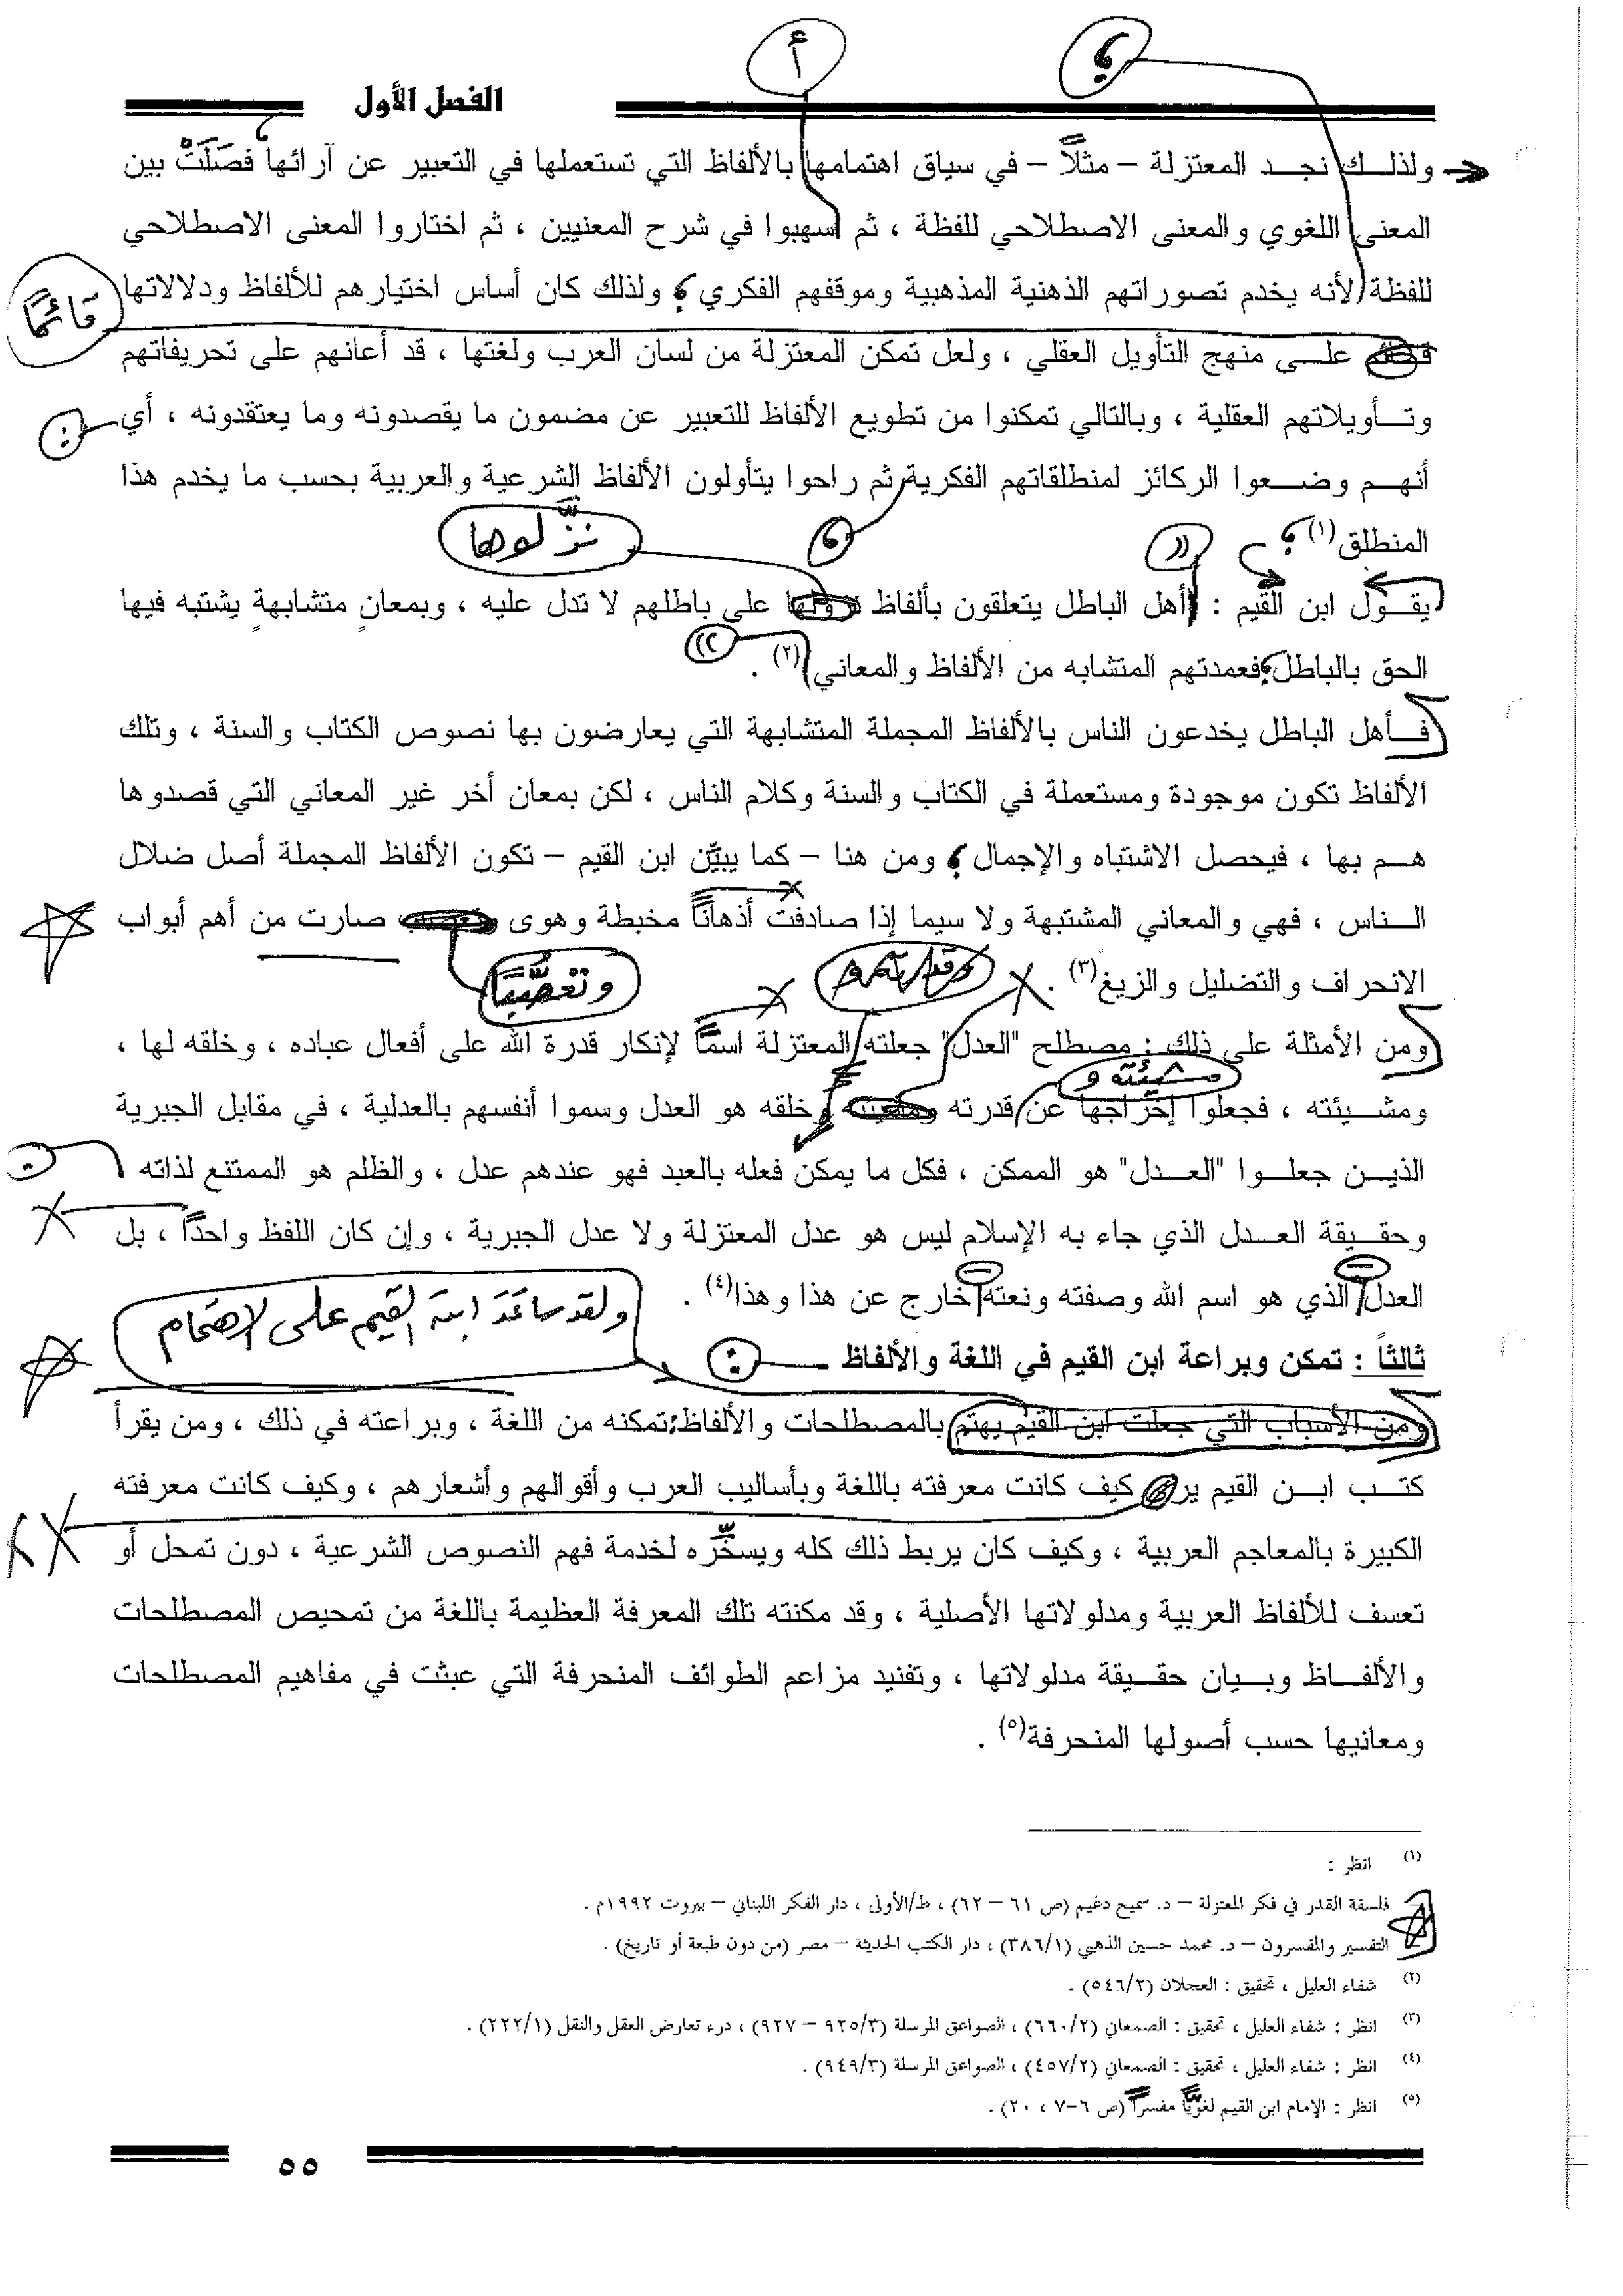 الفصل الأول
أ
؛
ولذلك نجد المعتزلة – مثلاً – في سياق اهتمامها بالألفاظ التي تستعملها في التعبير عن آرائها فصَلَتْ بين
المعنى اللغوي والمعنى الاصطلاحي للفظة ، ثم أسهبوا في شرح المعنيين ، ثم اختاروا المعنى الاصطلاحي
للفظة لأنه يخدم تصوراتهم الذهنية المذهبية وموقفهم الفكري ؛ ولذلك كان أساس اختيارهم للألفاظ ودلالاتها
قائمًا
على منهج التأويل العقلي ، ولعل تمكن المعتزلة من لسان العرب ولغتها ، قد أعانهم على تحريفاتهم
وتأويلاتهم العقلية ، وبالتالي تمكنوا من تطويع الألفاظ للتعبير عن مضمون ما يقصدونه وما يعتقدونه ، أي :
أنهم وضعوا الركائز لمنطلقاتهم الفكرية ثم راحوا يتأولون الألفاظ الشرعية والعربية بحسب ما يخدم هذا
المنطلق(١) ؛
نزَّلوها
يقول ابن القيم : "أهل الباطل يتعلقون بألفاظ على باطلهم لا تدل عليه ، وبمعانٍ متشابهةٍ يشتبه فيها
الحق بالباطل ؛ فعمدتهم المتشابه من الألفاظ والمعاني"(٢) .
فأهل الباطل يخدعون الناس بالألفاظ المجملة المتشابهة التي يعارضون بها نصوص الكتاب والسنة ، وتلك
الألفاظ تكون موجودة ومستعملة في الكتاب والسنة وكلام الناس ، لكن بمعان أخر غير المعاني التي قصدوها
هم بها ، فيحصل الاشتباه والإجمال ؛ ومن هنا – كما يبيّن ابن القيم – تكون الألفاظ المجملة أصل ضلال
الناس ، فهي والمعاني المشتبهة ولا سيما إذا صادفت أذهاناً مخبطة وهوى صارت من أهم أبواب
وتعصُّبًا
الانحراف والتضليل والزيغ(٣) .
ومن الأمثلة على ذلك : مصطلح "العدل" جعلته المعتزلة اسمًا لإنكار قدرة الله على أفعال عباده ، وخلقه لها ،
مشيئته و
ومشيئته ، فجعلوا إخراجها عن قدرته وخلقه هو العدل وسموا أنفسهم بالعدلية ، في مقابل الجبرية
الذين جعلوا "العدل" هو الممكن ، فكل ما يمكن فعله بالعبد فهو عندهم عدل ، والظلم هو الممتنع لذاته .
وحقيقة العدل الذي جاء به الإسلام ليس هو عدل المعتزلة ولا عدل الجبرية ، وإن كان اللفظ واحدًا ، بل
العدل – الذي هو اسم الله وصفته ونعته – خارج عن هذا وهذا(٤) .
ولقد ساعَدَ ابنَ القيم على الاهتمام
ثالثاً : تمكن وبراعة ابن القيم في اللغة والألفاظ :
ومن الأسباب التي جعلت ابن القيم يهتم بالمصطلحات والألفاظ: تمكنه من اللغة ، وبراعته في ذلك ، ومن يقرأ
كتب ابن القيم ير كيف كانت معرفته باللغة وبأساليب العرب وأقوالهم وأشعارهم ، وكيف كانت معرفته
الكبيرة بالمعاجم العربية ، وكيف كان يربط ذلك كله ويسخّره لخدمة فهم النصوص الشرعية ، دون تمحل أو
تعسف للألفاظ العربية ومدلولاتها الأصلية ، وقد مكنته تلك المعرفة العظيمة باللغة من تمحيص المصطلحات
والألفاظ وبيان حقيقة مدلولاتها ، وتفنيد مزاعم الطوائف المنحرفة التي عبثت في مفاهيم المصطلحات
ومعانيها حسب أصولها المنحرفة(٥) .
(١) انظر :
فلسفة القدر في فكر المعتزلة – د. سميح دغيم (ص ٦١ – ٦٢) ، ط/الأولى ، دار الفكر اللبناني – بيروت ١٩٩٢م .
التفسير والمفسرون – د. محمد حسين الذهبي (٣٨٦/١) ، دار الكتب الحديثة – مصر (من دون طبعة أو تاريخ) .
(٢) شفاء العليل ، تحقيق : العجلان (٥٤٦/٢) .
(٣) انظر : شفاء العليل ، تحقيق : الصمعاني (٦٦٠/٢) ، الصواعق المرسلة (٩٢٥/٣ – ٩٢٧) ، درء تعارض العقل والنقل (٢٢٢/١) .
(٤) انظر : شفاء العليل ، تحقيق : الصمعاني (٤٥٧/٢) ، الصواعق المرسلة (٩٤٩/٣) .
(٥) انظر : الإمام ابن القيم لغويًّا مفسرًا (ص ٦-٧ ، ٢٠) .
٥٥